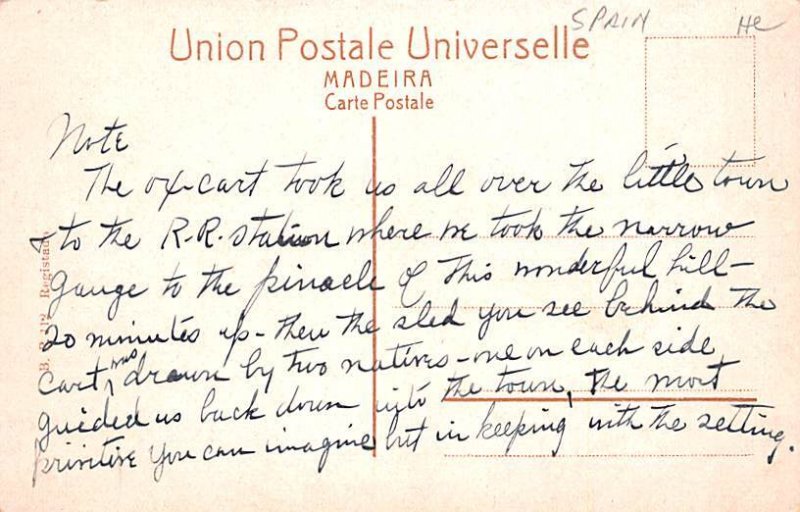 SPAIN
He
Union Postale Universelle
MADEIRA
Carte Postale
Note
The ox-cart took us all over the little town
to the R.R. station where we took the narrow
gauge to the pinacle of this wonderful hill-
20 minutes up - then the sled you see behind the
cart, was drawn by two natives - one on each side
guided us back down into the town, the most
primitive you can imagine but in keeping with the setting.
Registado